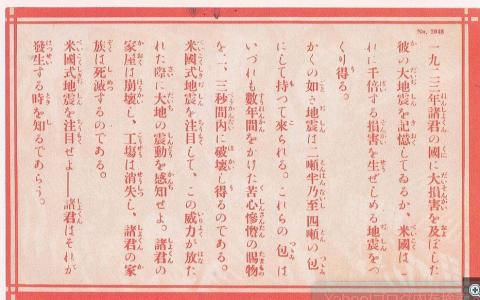 No. 2048
一九二三年諸君の國に大損害を及ぼした
彼の大地震を記憶してゐるか、米國は こ
れに千倍する損害を生ぜしめる地震をつ
くり得る。
かくの如き地震は二噸半乃至四噸の包
にして持つて來られる。これらの包は
いづれも數年間をかけた苦心慘憺の賜物
を、二、三秒間內に破壞し得るのである。
米國式地震を注目して、この威力が放た
れた際に大地の震動を感知せよ。諸君の
家屋は崩壞し、工場は消失し、諸君の家
族は死滅するのである。
米國式地震を注目せよ——諸君はそれが
發生する時を知るであらう。